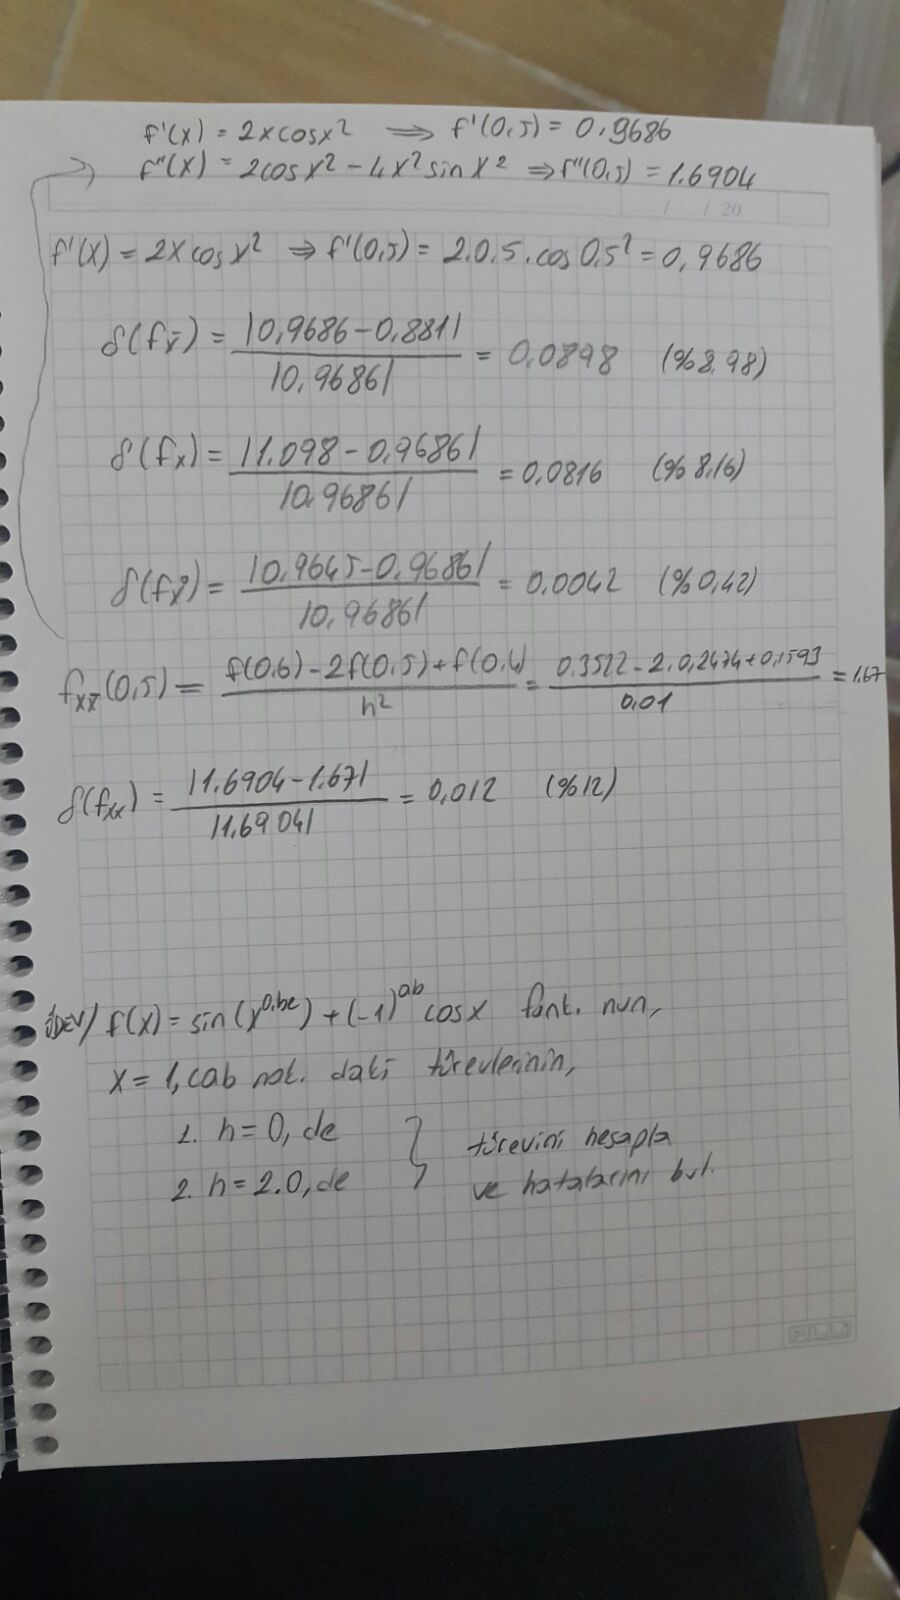 f'(x) = 2xcosx² ⇒ f'(0,5) = 0.9686
f''(x) = 2cosx² - 4x²sinx² ⇒ f''(0,5) = 1.6904
/ / 20
f'(x) = 2xcosx² ⇒ f'(0,5) = 2.0,5.cos0,5² = 0,9686
δ(f_x̄) = |0,9686-0,881| / |0,9686| = 0,0898 (%8,98)
δ(f_x) = |1.098-0,9686| / |0,9686| = 0,0816 (%8,16)
δ(f_x̂) = |0,9645-0,9686| / |0,9686| = 0,0042 (%0,42)
f_xx̄(0,5) = f(0,6)-2f(0,5)+f(0,4) / h² = 0,3522-2.0,2474+0,1593 / 0,01 = 1,67
δ(f_xx) = |1.6904-1.67| / |1,6904| = 0,012 (%12)
ÖDEV/ f(x) = sin(x^0,bc) + (-1)^ab cosx fonk. nun,
x = 1,cab nok. daki türevlerinin,
1. h=0,de
2. h=2.0,de } türevini hesapla
ve hatalarını bul.